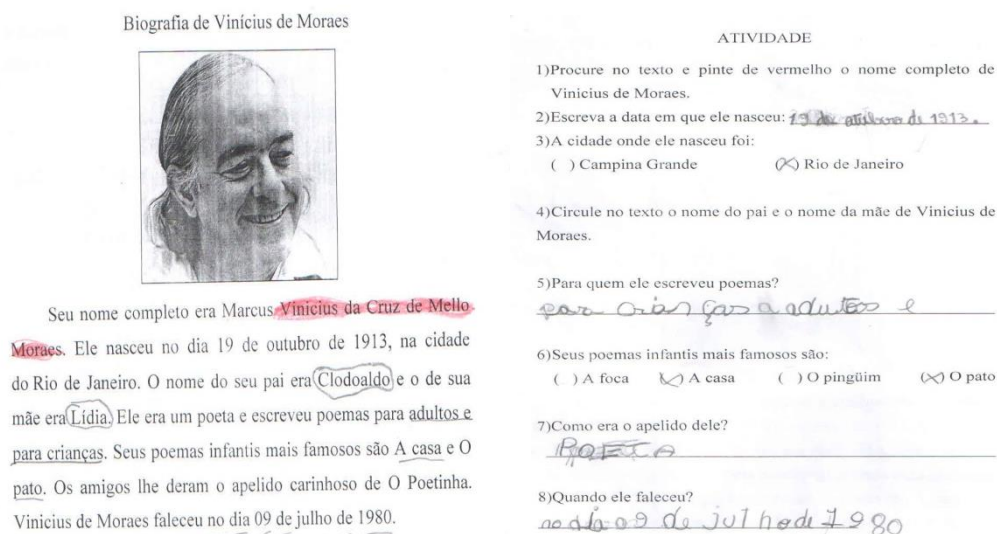 Biografia de Vinícius de Moraes
Seu nome completo era Marcus Vinicius da Cruz de Mello
Moraes. Ele nasceu no dia 19 de outubro de 1913, na cidade
do Rio de Janeiro. O nome do seu pai era Clodoaldo e o de sua
mãe era Lídia. Ele era um poeta e escreveu poemas para adultos e
para crianças. Seus poemas infantis mais famosos são A casa e O
pato. Os amigos lhe deram o apelido carinhoso de O Poetinha.
Vinicius de Moraes faleceu no dia 09 de julho de 1980.
ATIVIDADE
1)Procure no texto e pinte de vermelho o nome completo de
Vinicius de Moraes.
2)Escreva a data em que ele nasceu: 19 de outubro de 1913.
3)A cidade onde ele nasceu foi:
( ) Campina Grande (X) Rio de Janeiro
4)Circule no texto o nome do pai e o nome da mãe de Vinicius de
Moraes.
5)Para quem ele escreveu poemas?
para crianças a adutos e
6)Seus poemas infantis mais famosos são:
( ) A foca (X) A casa ( ) O pingüim (X) O pato
7)Como era o apelido dele?
POETA
8)Quando ele faleceu?
no dia 09 de julho de 1980